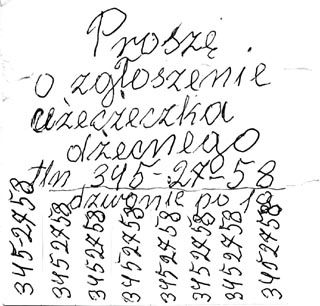 Proszę
o zgłoszenie
użeczeczka
dżecnego
tln 345-27-58
dzwonie po 18
3452758
3452758
3452758
3452758
3452758
3452758
3452758
3452758